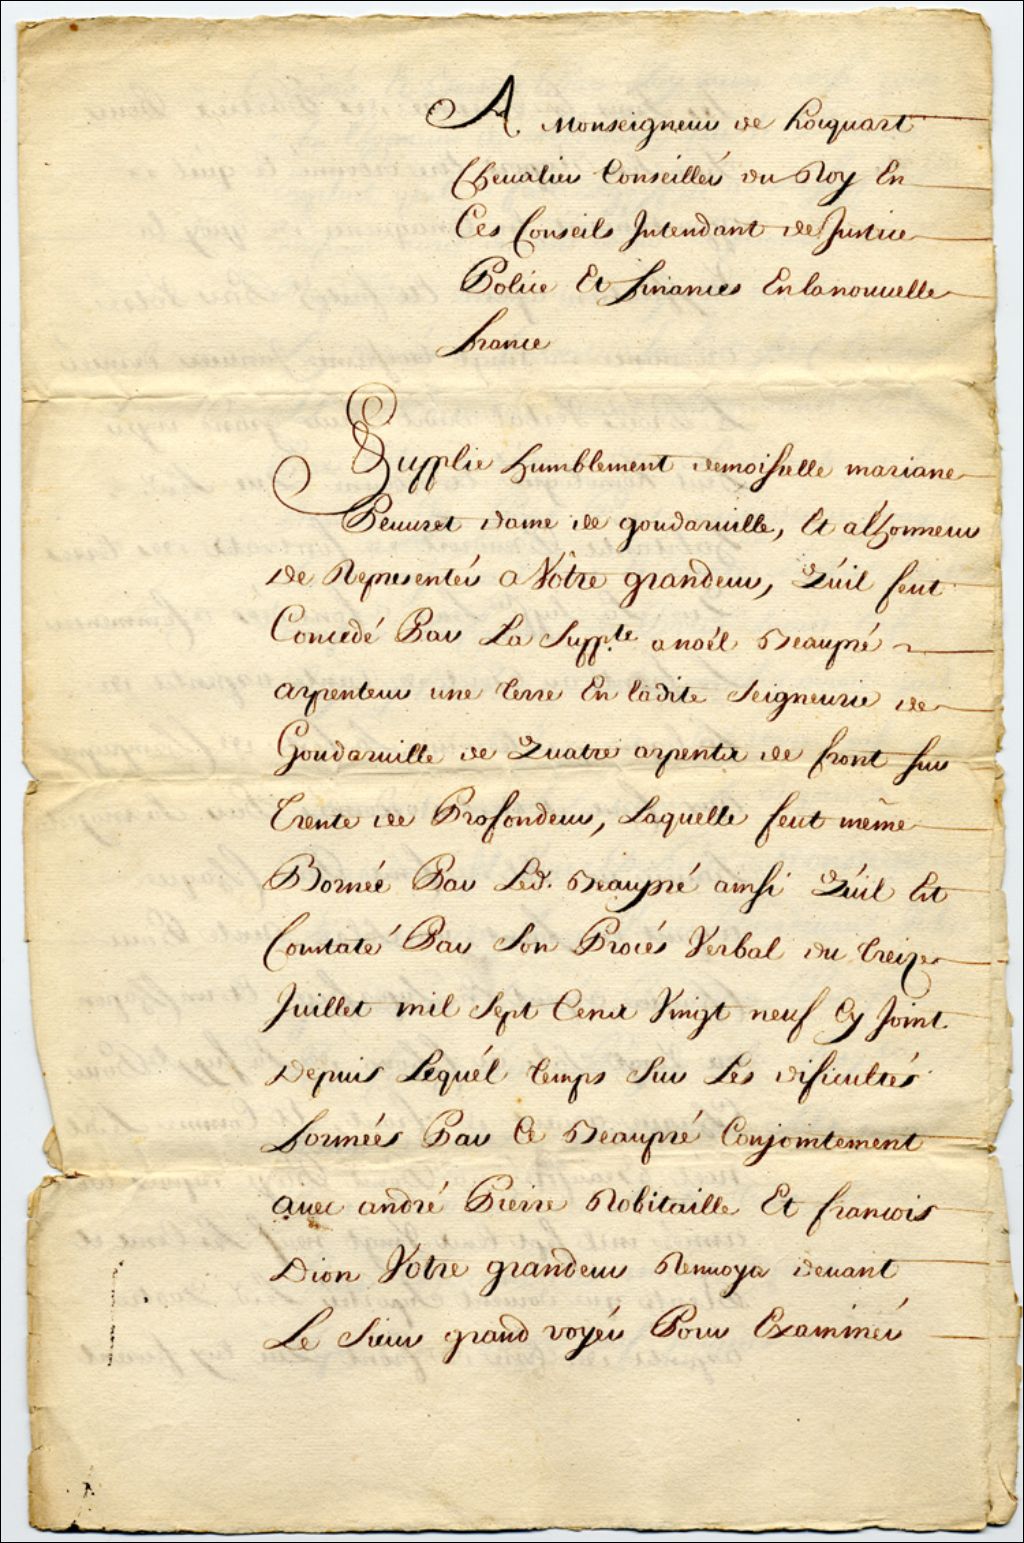 A Monseigneur de hocquart
Chevalier Conseiller du Roy En
Ces Conseils Intendant de Justice
Police Et finances En la nouvelle
france
Supplie humblement demoiselle mariane
Peuuret dame de gaudaruille, Et a lhonneur
de Representér a Vôtre grandeur, Quil feut
Concedé Par La Supp.te a noél Beaupré
arpenteur une terre En ladite seigneurie de
Gaudaruille de Quatre arpents de front sur
trente de Profondeur, Laquelle feut même
Bornée Par Led. Beaupré ainsi Quil Est
Constaté Par Son Procés Verbal du treize
Juillet mil Sept Cent Vingt neuf Cy Joint
Depuis Lequél temps Sur Les dificultés
formées Par Ce Beaupré Conjointement
auec andré Pierre Robitaille Et francois
Dion Votre grandeur Renuoya deuant
Le Sieur grand voyér Pour Examinér